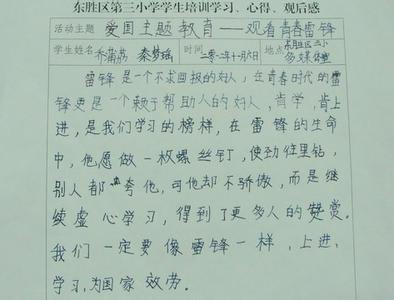 东胜区第三小学学生培训学习、心得、观后感
活动主题 爱国主题教育——观看青春雷锋
学生姓名 乔蒲荔 秦梦瑶 时间 二零一二年十一月六日 地点 东胜区三小多媒体室
雷锋是一个不求回报的好人，在青春时代的雷
锋更是一个乐于帮助人的好人，肯学，肯上
进，是我们学习的榜样，在雷锋的生命
中，他愿做一枚螺丝钉，使劲往里钻，
别人都夸他，可他却不骄傲，而是继
续虚心学习，得到了更多人的赞赏。
我们一定要像雷锋一样，上进，
学习，为国家效劳。